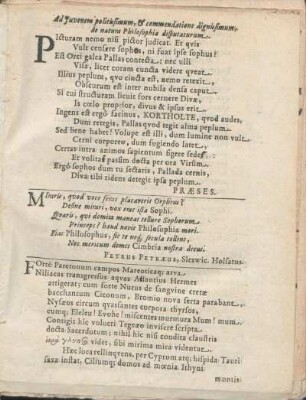 Ad Juvenem politissimum, & commendatione dignissimum,
de natura Philosophiæ disputaturum.
PIcturam nemo nisi pictor judicat. Et quis
Vult censere sophos, ni fuat ipse sophus?
Est Orci galea Pallas contecta: nec ulli
Visa, licet coram cuncta videre queat.
Illius peplum, quo cincta est, nemo retexit.
Obscurum est inter nubila densa caput.
Si cui structuram licuit fors cernere Divæ,
Is cœlo propior, divus & ipse fuit.
Ingens est ergò facinus, KORTHOLTE, quod audes,
Dum retegis, Pallas quod tegit alma peplum.
Sed bene habet! Volupe est illi, dum lumine non vult
Cerni corporeo, dum fugiendo latet,
Certas intra animos sapientum figere sedes:
Et volitat passim docta per ora Virûm.
Ergò sophos dum tu sectaris, Pallada cernis,
Diva tibi ridens detegit ipsa peplum.
PRÆSES.
MIraris, quod voce feras placaverit Orpheus?
Desine mirari, vox erat ista Sophi.
Quæris, qui domita maneat tellure Sophorum
Princeps? haud novit Philosophia mori.
Fias Philosophus, sic te neq; secula tollent,
Nec mersum domit Cimbria nostra dreni.
PETRUS PETRÆUS, Slesvic. Holsatus.
FOrtè Parætonium campos Mareoticaq; arva
Niliacas transgressus aquas Atlantius Hermes
attigerat; cum forte Notus de sangvine cretæ
baccharum Ciconum, Bromio nova serta parabant,
Nyseos circum quassantes corpora thyrsos,
eumq; Eleleu! Evohe! miscentes murmura Mum! mum.
Contigis hic volueri Tegeæo inviscere scripta
docta Sacerdotum; nihil hic nisi condita claustris
videt, sibi mirima mira videntur.
Hæc loca relinqvens, per Cyprum atq; hispida Tauri
saxa instat, Ciliumq; domos ad mœnia Ithyni
montis: